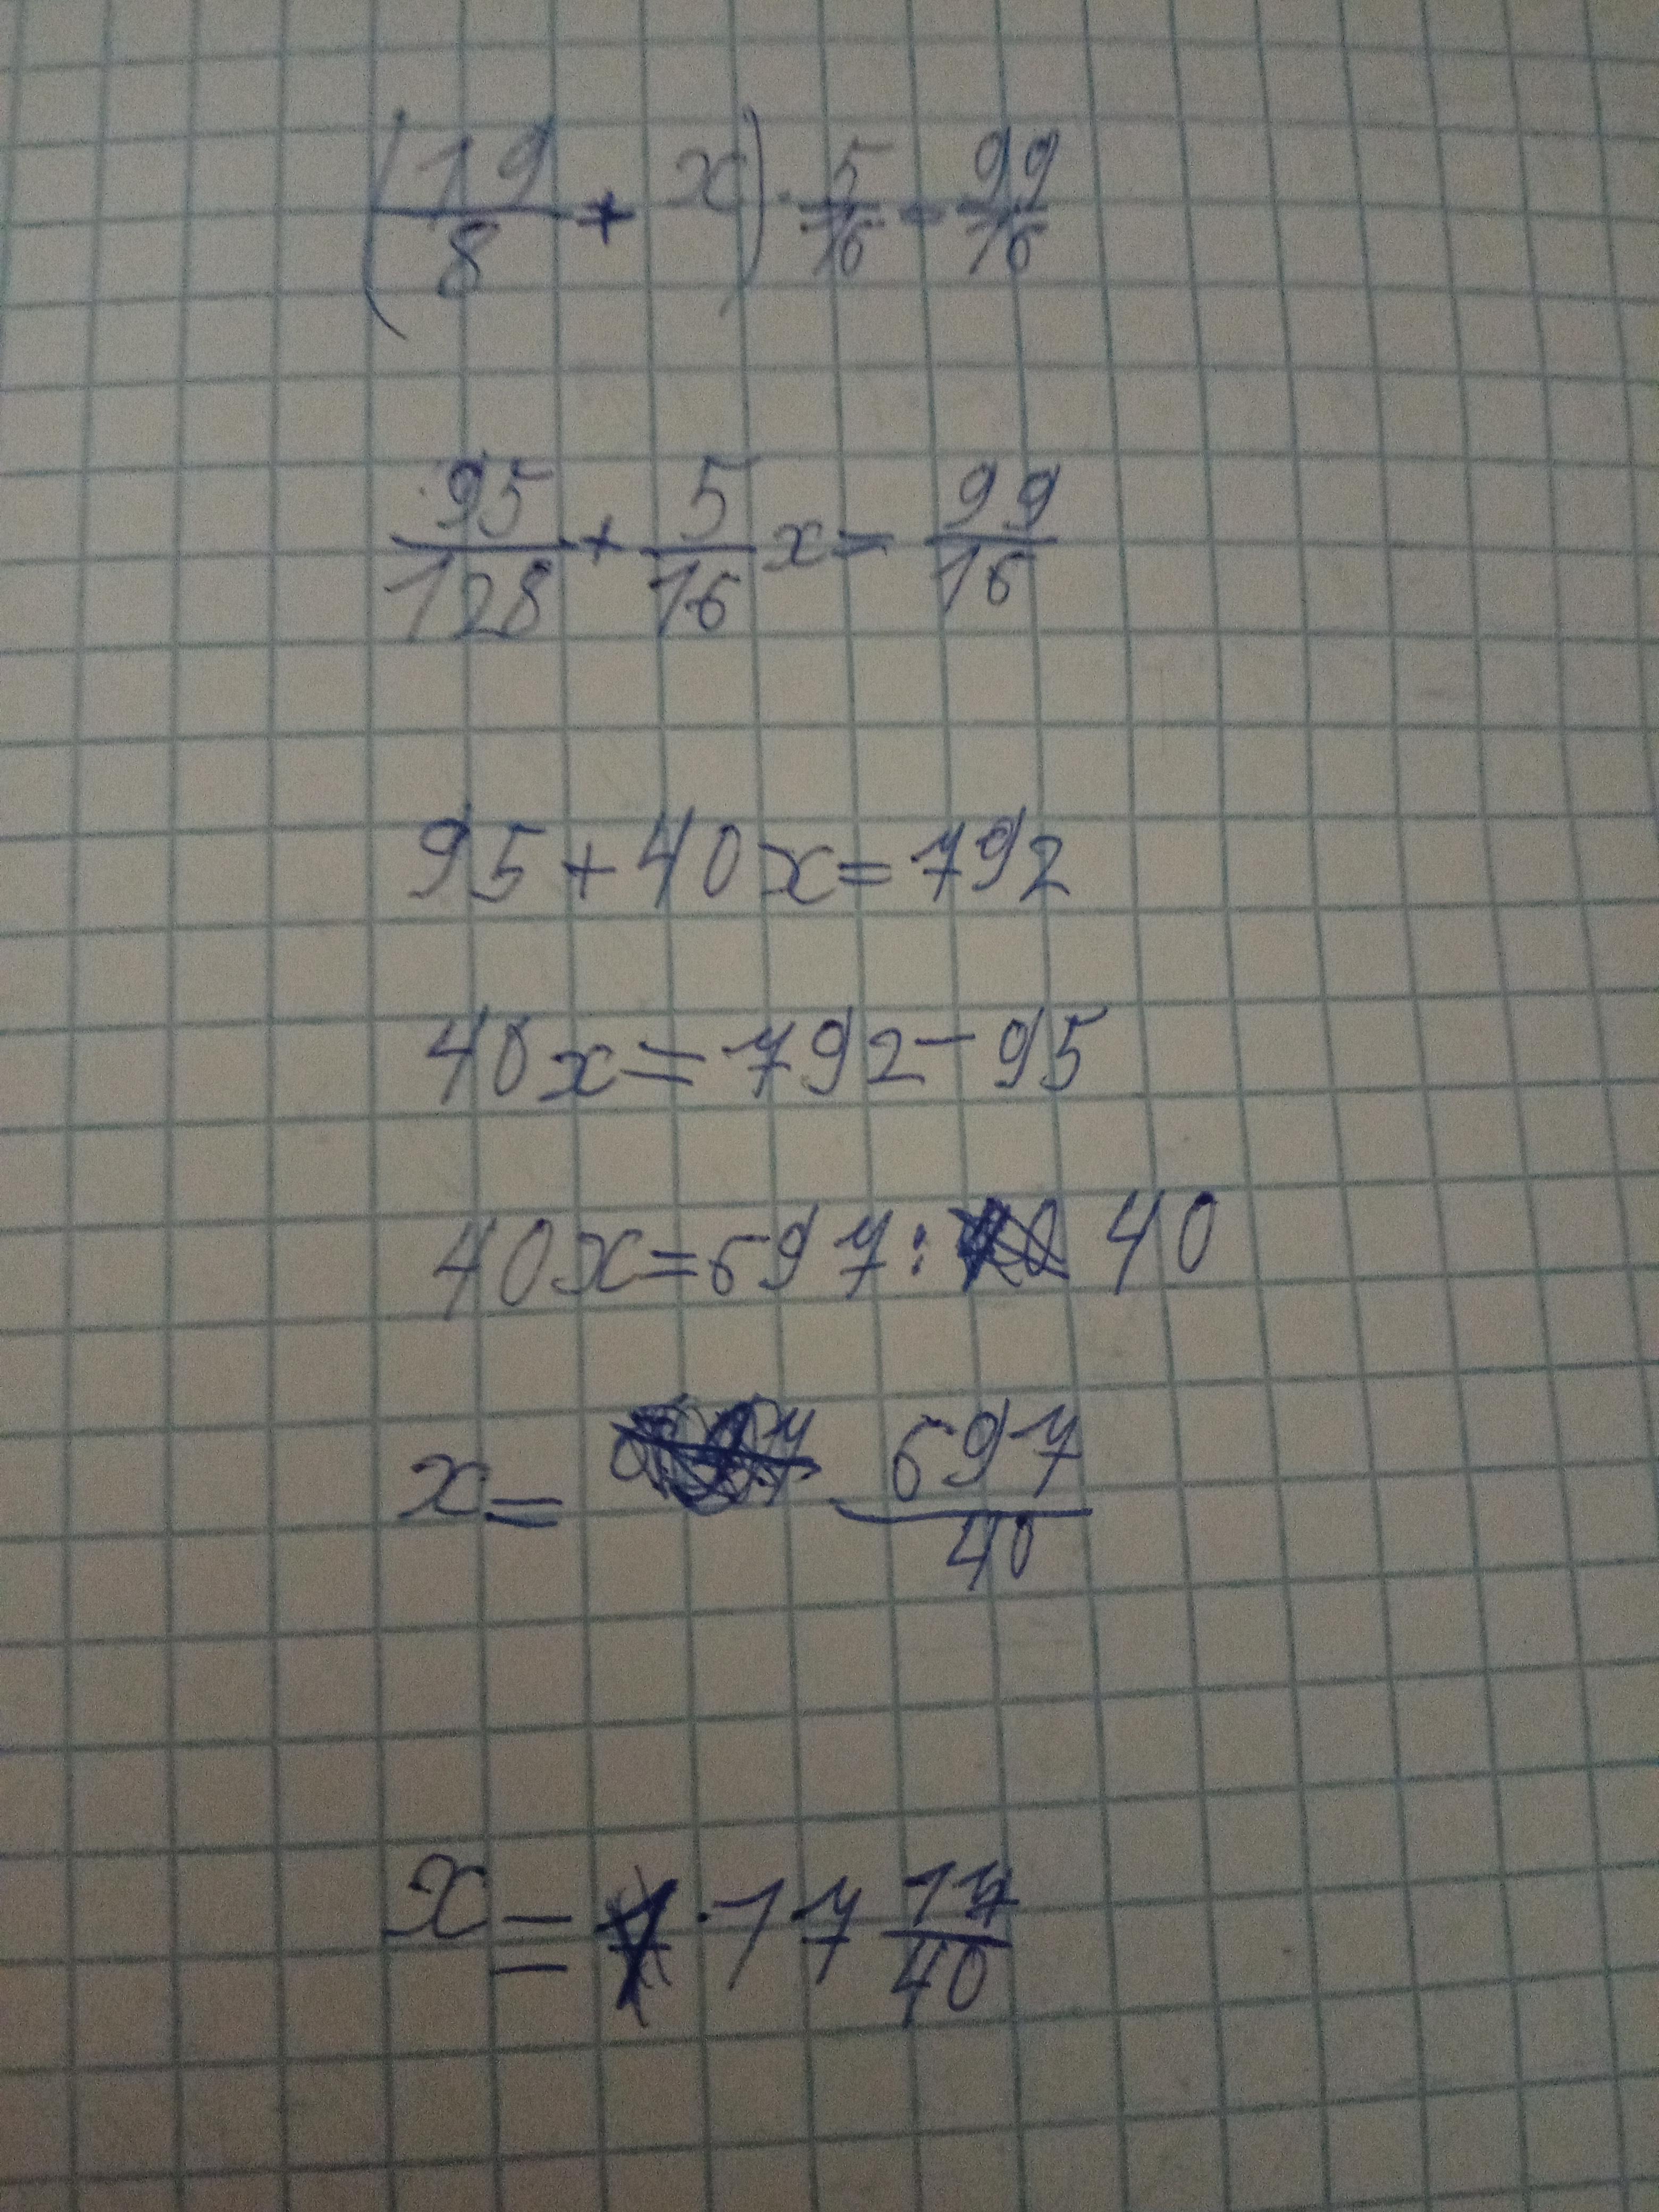 (19/8 + x) · 5/16 = 99/16
95/128 + 5/16 x = 99/16
95 + 40x = 792
40x = 792 - 95
40x = 697 : 40
x = 697/40
x = 17 17/40